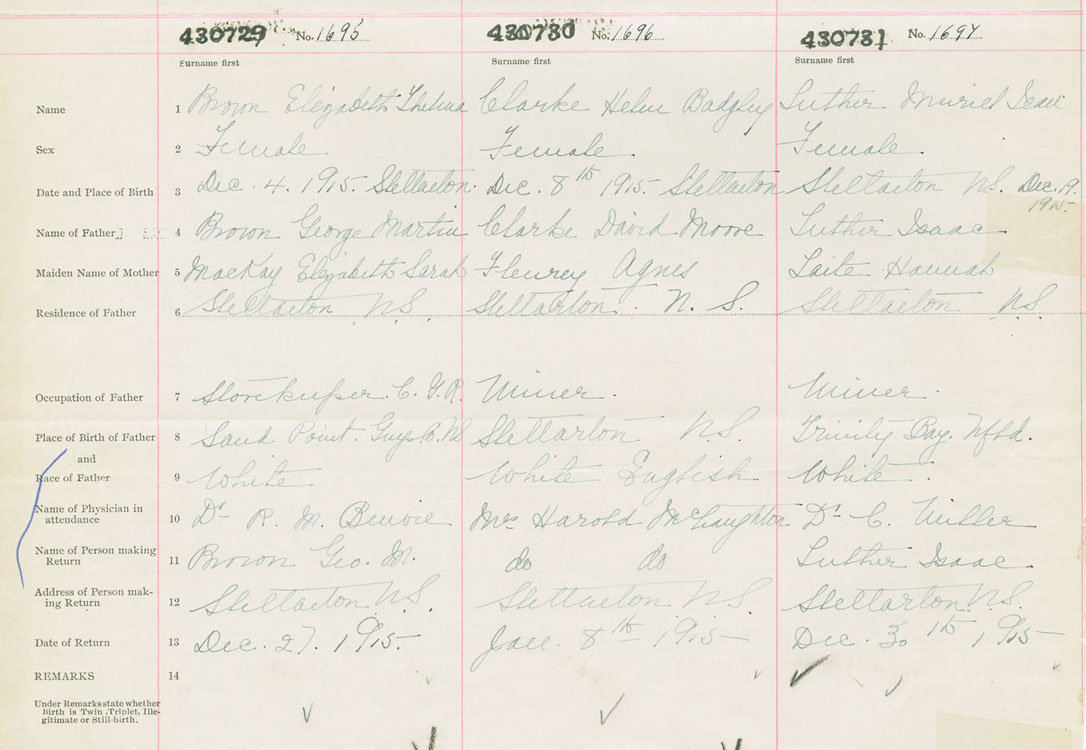 430729 No. 1695 430730 No. 1696 430731 No. 1697
Surname first Surname first Surname first
Name 1 Brown Elizabeth Thelma Clarke Helen Badgley Luther Muriel
Sex 2 Female Female. Female.
Date and Place of Birth 3 Dec. 4. 1915. Stellarton. Dec. 8th 1915. Stellarton Stellarton N.S. Dec. 19.
1915
Name of Father 4 Brown George Martin Clarke David Moore Luther Isaac
Maiden Name of Mother 5 MacKay Elizabeth Sarah Fleurey Agnes Laite Hannah
Residence of Father 6 Stellarton N.S. Stellarton. N. S. Stellarton N.S.
Occupation of Father 7 Storekeeper C. G. R. Miner. Miner.
Place of Birth of Father 8 Sand Point. Guys. Co. NS Stellarton N.S. Trinity Bay. Nfld.
and
Race of Father 9 White White English White.
Name of Physician in
attendance 10 Dr R. M. Benvie Mrs Harold McNaughton Dr C. Miller
Name of Person making
Return 11 Brown Geo. M. do do Luther Isaac.
Address of Person mak-
ing Return 12 Stellarton N.S. Stellarton N.S. Stellarton. N.S.
Date of Return 13 Dec. 27. 1915. Jan. 8th 1915 Dec. 30th 1915
REMARKS 14
Under Remarks state whether
Birth is Twin, Triplet, Ille-
gitimate or Still-birth.